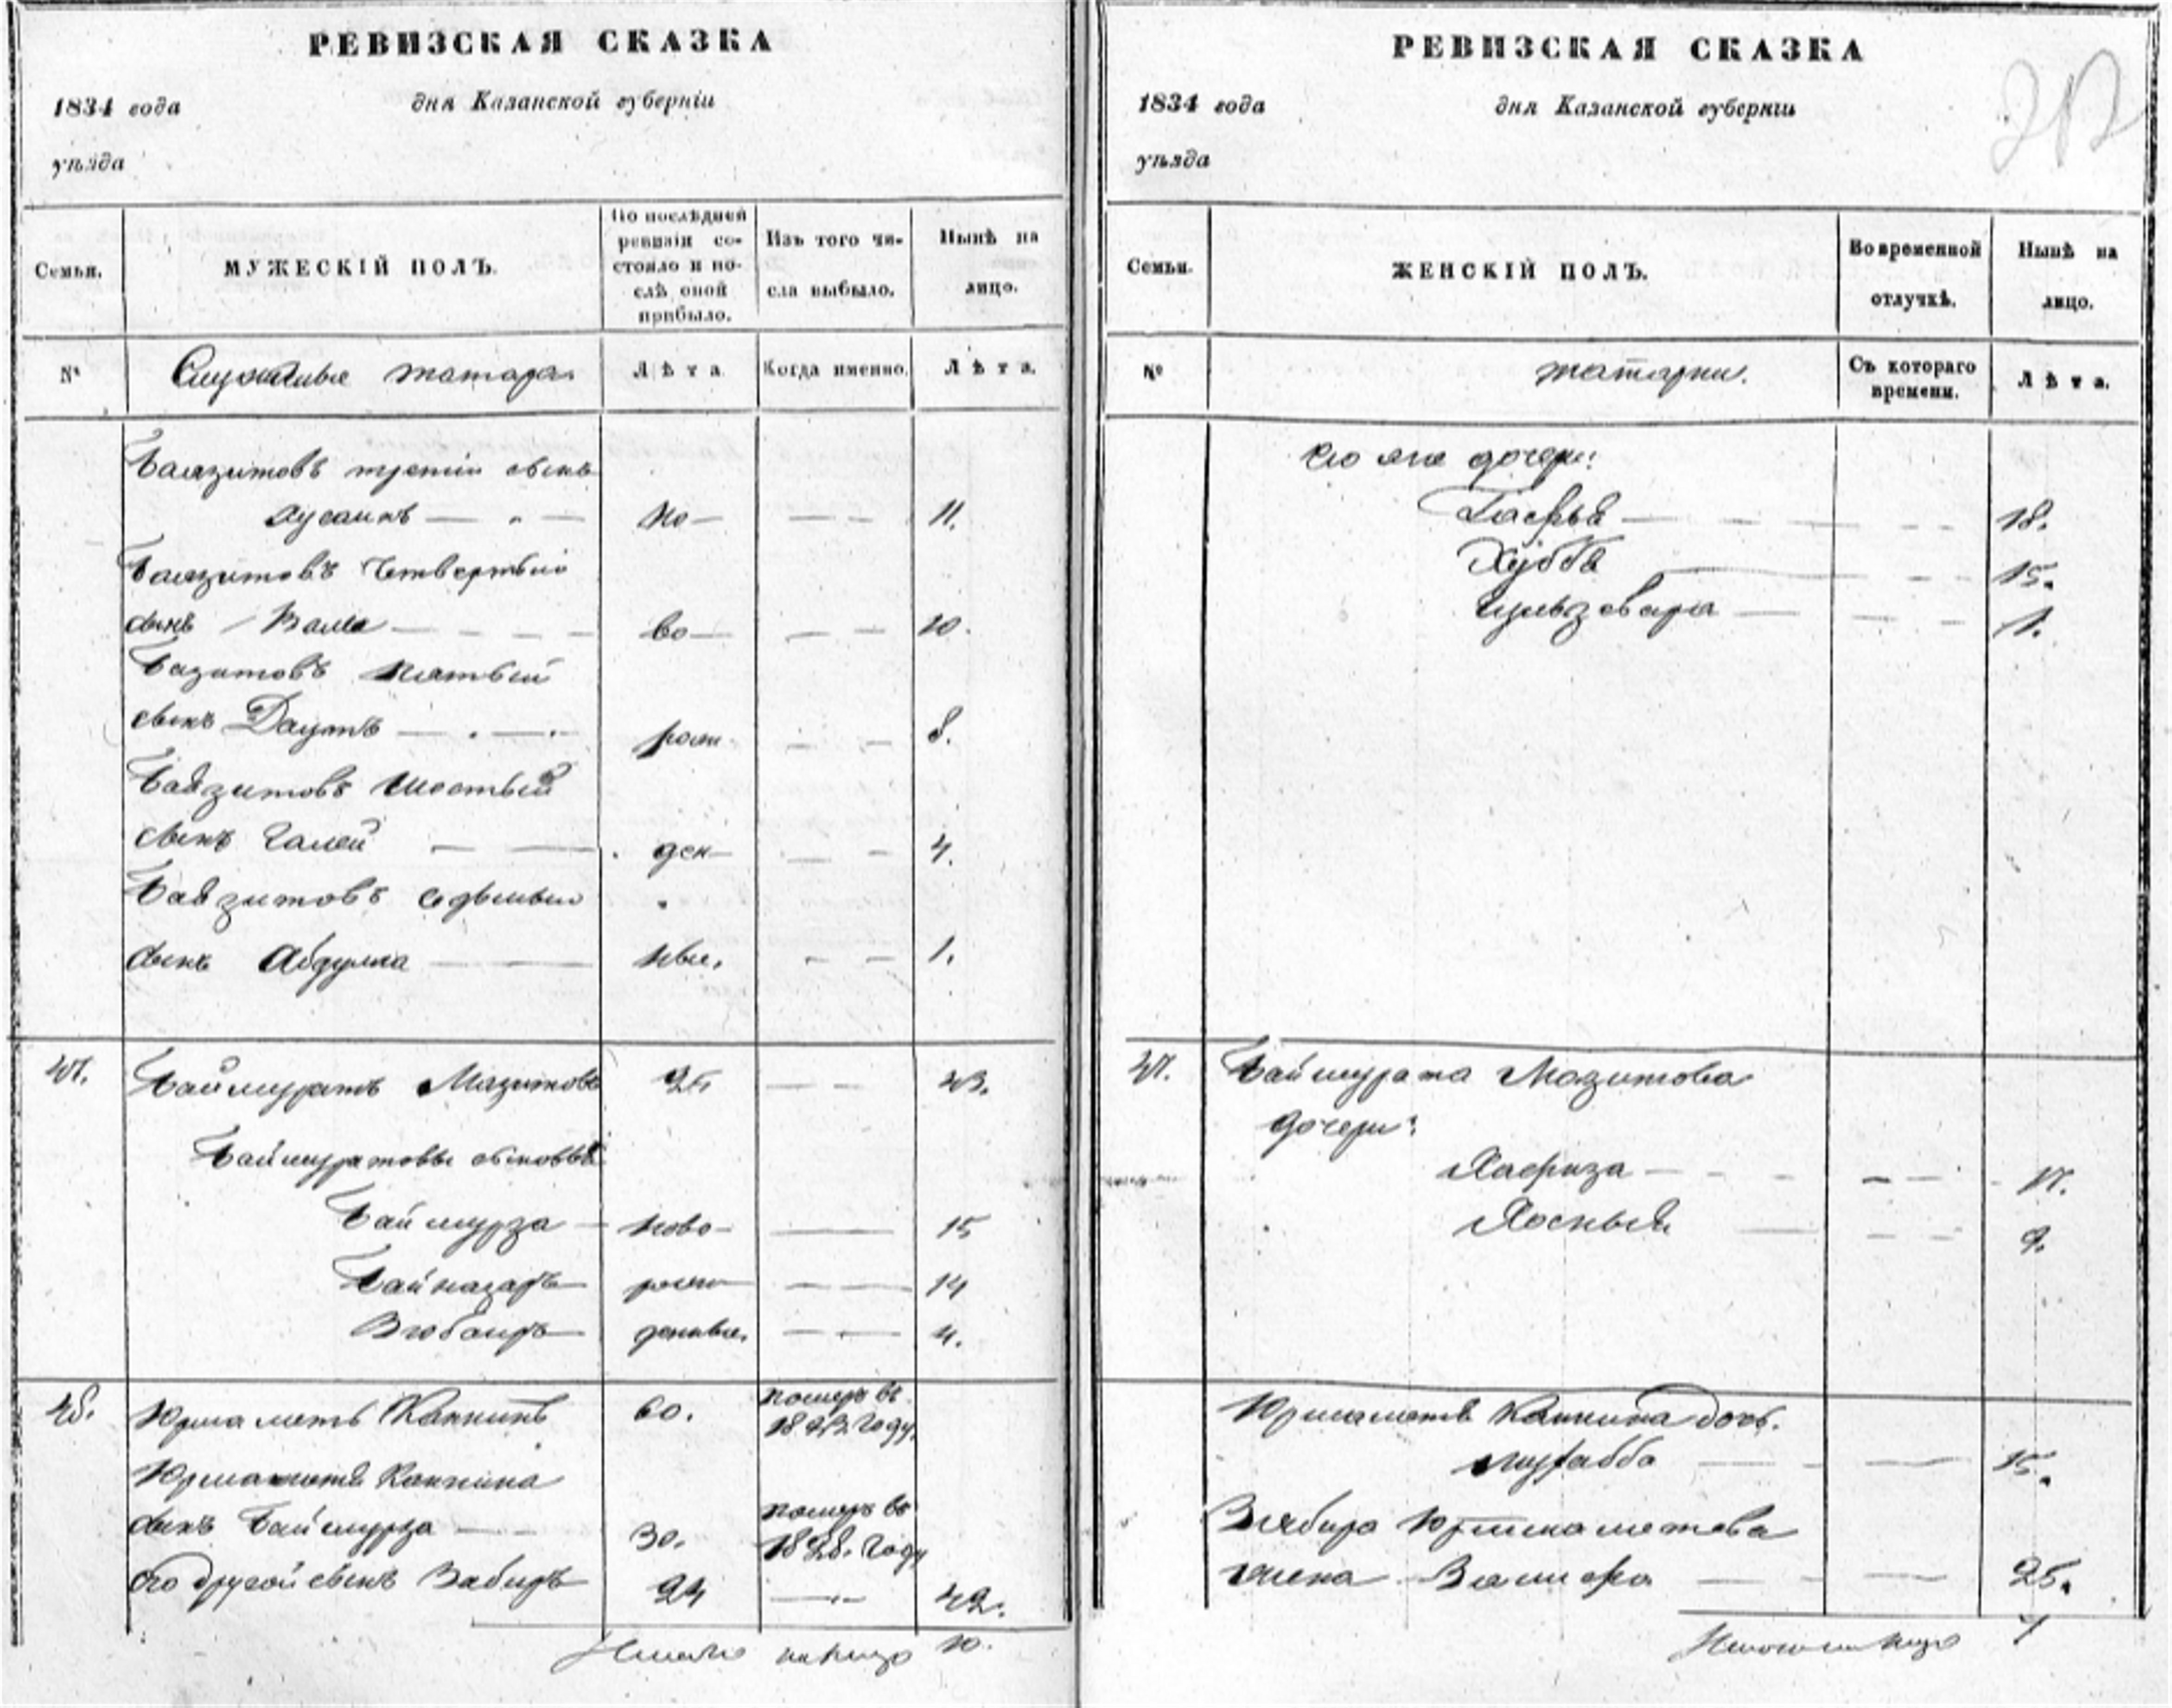 РЕВИЗСКАЯ СКАЗКА
1834 года дня Казанской губерніи
уѣзда
Семьи.
МУЖЕСКІЙ ПОЛЪ.
По послѣдней ревизіи состояло и послѣ оной прибыло.
Изъ того числа выбыло.
Нынѣ на лицо.
№
Служилые татара
Лѣта
Когда именно.
Лѣта.
Баязитовъ третій сынъ
Хусаинъ — но — 11.
Баязитовъ четвертый
сынъ Вали — во — 10.
Баязитовъ пятый
сынъ Даутъ — рож 8.
Баязитовъ шестый
сынъ Галей — ден — 4.
Баязитовъ седьмый
сынъ Абдулла — ные. 1.
47. Баймуратъ Мазитовъ 25 43.
Баймуратовы сыновья
Баймурза — ново — 15
Байназаръ — рож 14
Зюбаиръ — денные. 4.
48. Юрмаметъ Капкинъ 60. померъ въ
18 году.
Юрмаметя Капкина
сынъ Баймурза — 30. померъ въ
1828. году
его другой сынъ Забиръ 24 — 42.
Итого на лицо 10.
РЕВИЗСКАЯ СКАЗКА
1834 года дня Казанской губерніи
уѣзда
Семьи.
ЖЕНСКІЙ ПОЛЪ.
Во временной отлучкѣ.
Нынѣ на лицо.
№
татарки.
Съ котораго времени.
Лѣта.
Его же дочери:
18.
Хубба 15.
Гульзевара — 1.
47. Баймурата Мазитова
дочери:
Хафиза — 17.
9.
Юрмаметя Капкина дочь.
15.
Забира Юрмаметева
жена 25.
Итого на лицо 7